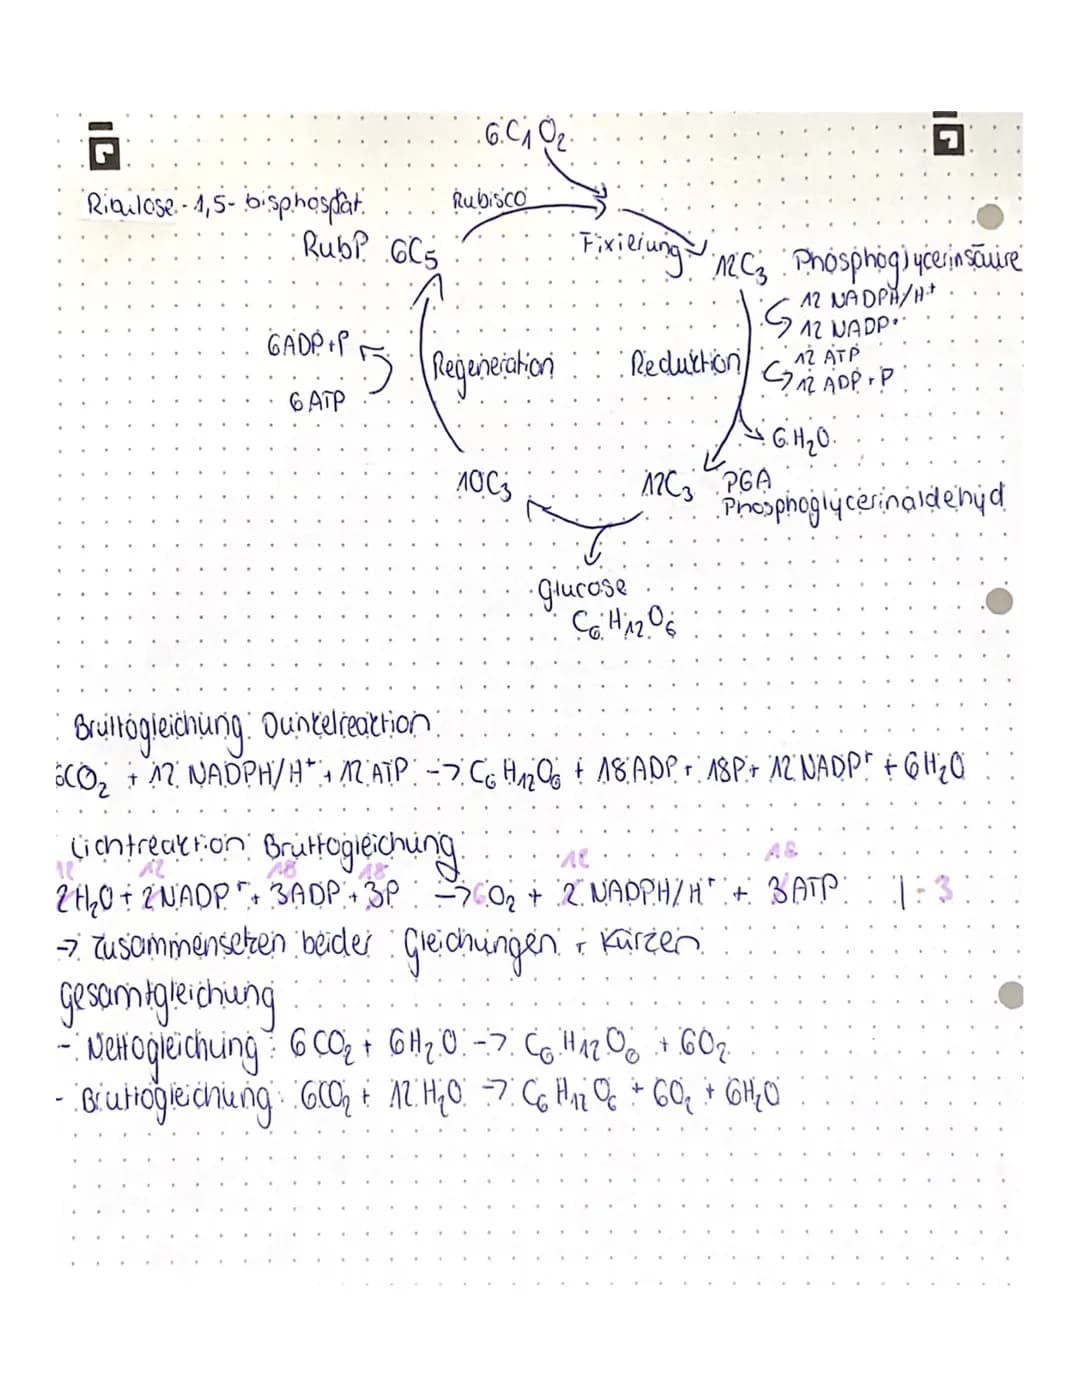 6C1O2
Ribulose-1,5-bisphosphat
Rubisco
RubP 6C5
Fixierung
12C3 Phosphoglycerinsäure
12 NADPH/H+
12 NADP+
6ADP+P
Regeneration
Reduktion
12 ATP
12 ADP+P
6 ATP
6 H2O
10C3
12C3 PGA
Phosphoglycerinaldehyd
Glucose
C6H12O6
Bruttogleichung Dunkelreaktion
6CO2 + 12 NADPH/H+ + 12 ATP -> C6H12O6 + 18 ADP + 18P + 12 NADP+ + 6H2O
Lichtreaktion Bruttogleichung
12 12 18 18 12 18
2H2O + 2NADP+ + 3ADP + 3P -> 6O2 + 2 NADPH/H+ + 3 ATP
-> Zusammensetzen beider Gleichungen + Kürzen
Gesamtgleichung
- Nettogleichung: 6CO2 + 6H2O -> C6H12O6 + 6O2
- Bruttogleichung: 6CO2 + 12H2O -> C6H12O6 + 6O2 + 6H2O